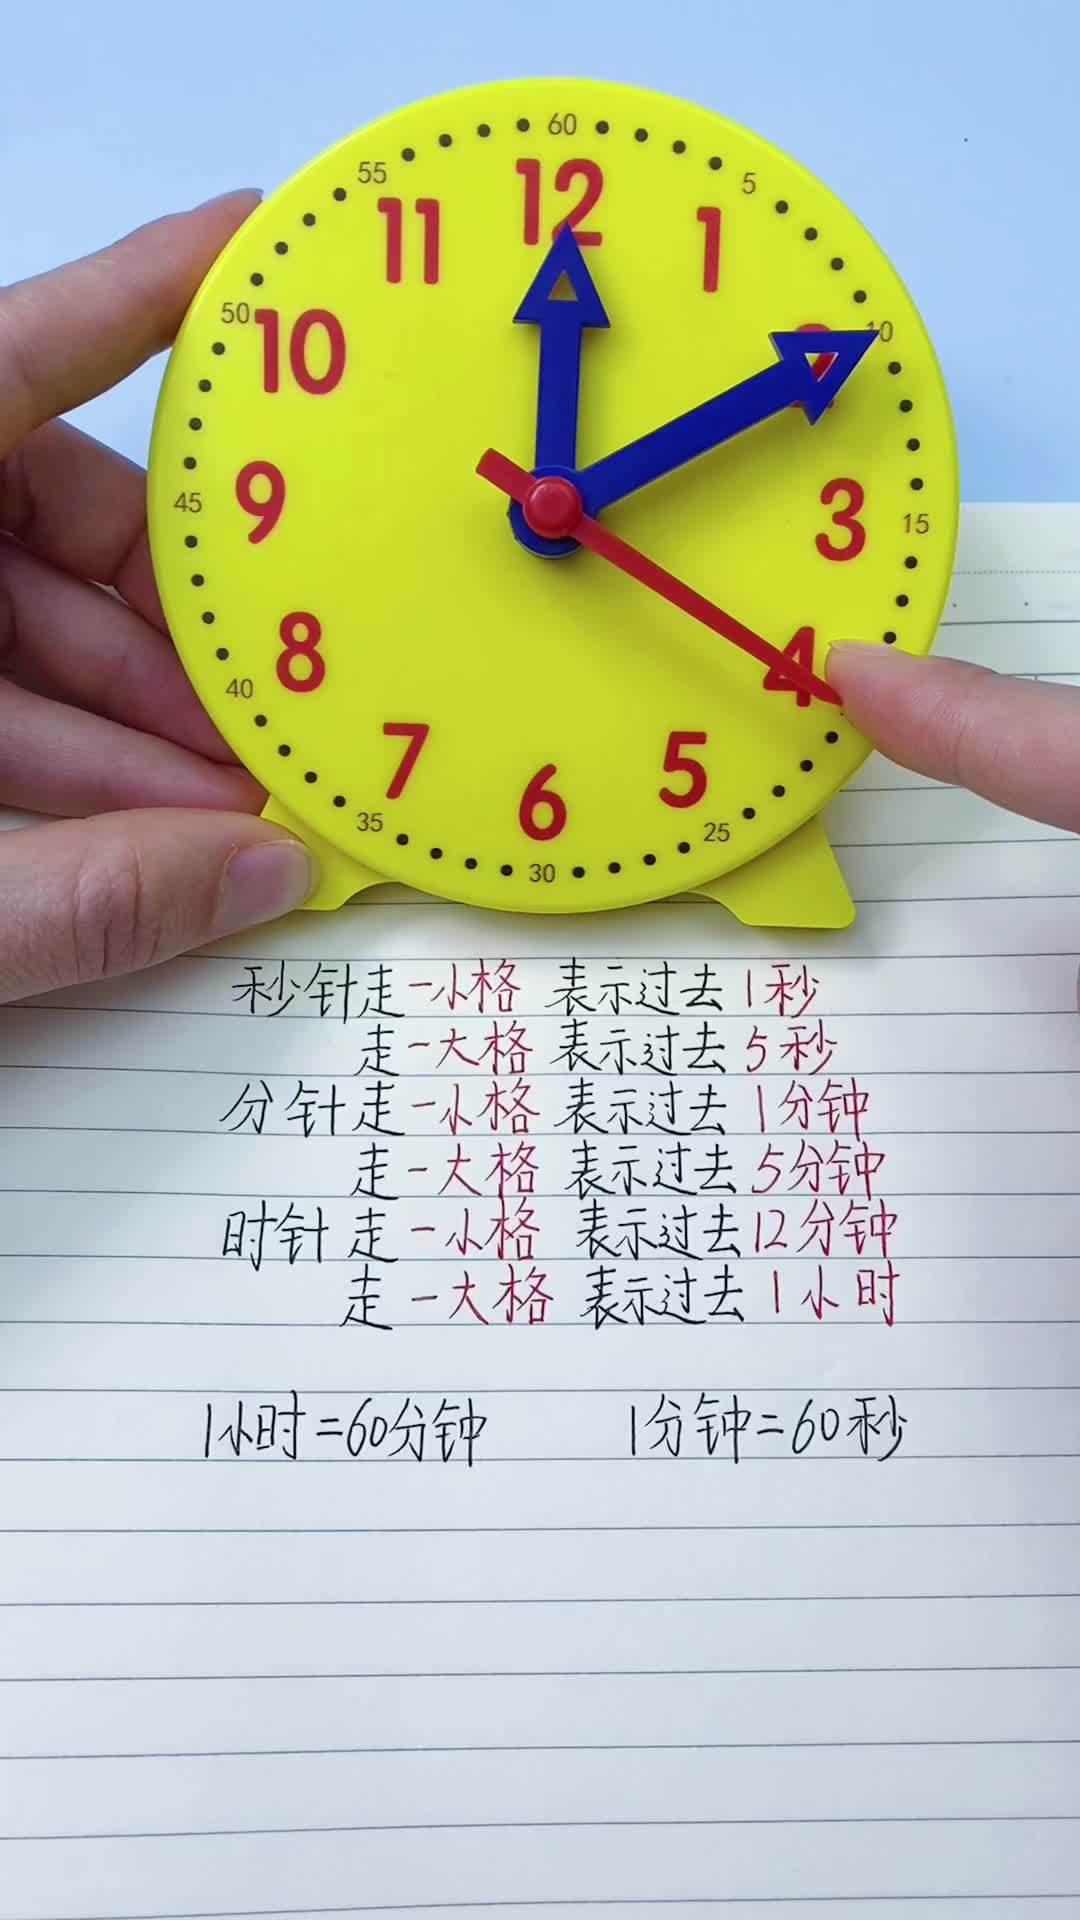 60
55
5
12
11
1
50
10
10
45
9
3
15
8
4
40
7
5
6
35
25
30
秒针走一小格 表示过去1秒
走一大格 表示过去5秒
分针走一小格 表示过去1分钟
走一大格 表示过去5分钟
时针走一小格 表示过去12分钟
走一大格 表示过去1小时
1小时=60分钟 1分钟=60秒